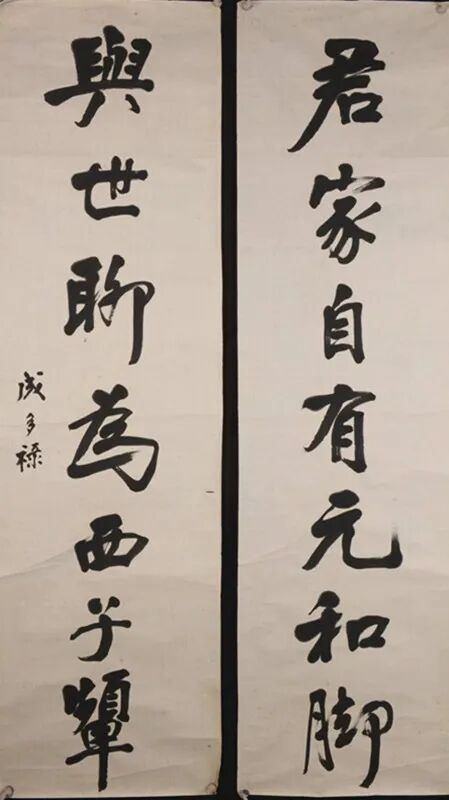 君家自有元和脚
與世聊為西子顰
成多祿